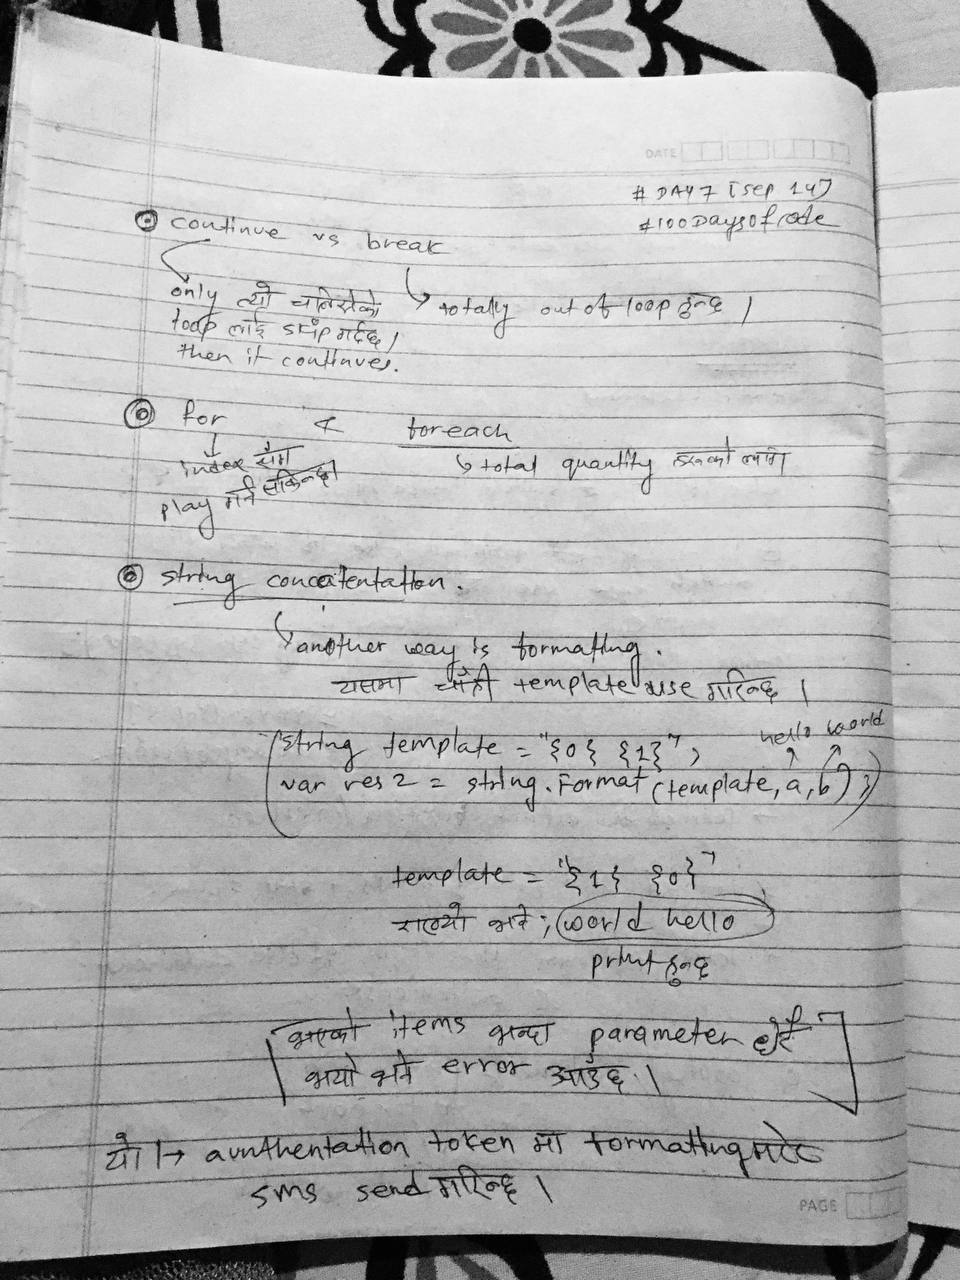 DATE
# DAY 7 [Sep 14]
#100DaysOfcode
continue vs break
only त्यो चलिरहेको
loop लाई skip गर्दछ।
then it continues.
totally out of loop हुन्छ।
for & foreach
index सँग
play गर्न सकिन्छ।
total quantity हरूको लागि
string concatentation.
another way is formatting.
यसमा चाँही template use गरिन्छ।
hello world
string template = "{0} {1}";
var res2 = string.Format(template, a, b);
template = "{1} {0}"
राख्यो भने; world hello
print हुन्छ
भएको items भन्दा parameter धेरै
भयो भने error आउँछ।
यो → aunthentation token मा formatting गरेर
sms send गरिन्छ।
PAGE